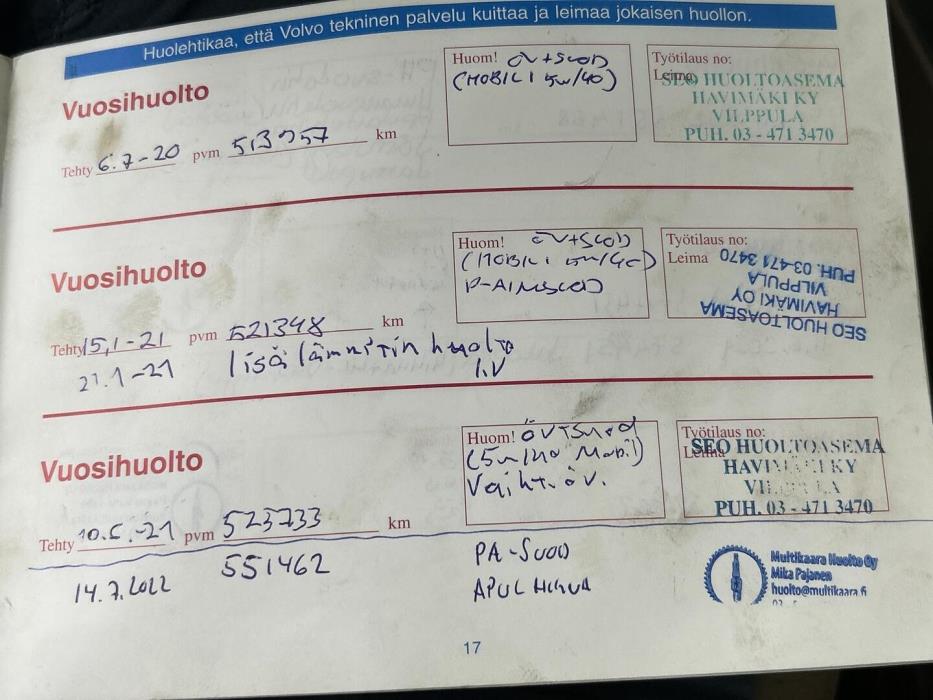 Huolehtikaa, että Volvo tekninen palvelu kuittaa ja leimaa jokaisen huollon.
Vuosihuolto
Tehty 6.7-20 pvm 513957 km
Huom! ÖV+SUOD
(MOBIL 1 5W/40)
Työtilaus no:
Leima
SEO HUOLTOASEMA
HAVIMÄKI KY
VILPPULA
PUH. 03 - 471 3470
Vuosihuolto
Tehty 15,1-21 pvm 521348 km
21.1-21 lisälämmitin huolto
I.V
Huom! ÖV+SUOD
(MOBIL 1 5W/40)
P-AINESUOD
Työtilaus no:
Leima
SEO HUOLTOASEMA
HAVIMÄKI OY
VILPPULA
PUH. 03-471 3470
Vuosihuolto
Tehty 10.5.-21 pvm 523733 km
Huom! öv+suod
(5w/40 Mobil)
Vaiht. öv.
Työtilaus no:
Leima
SEO HUOLTOASEMA
HAVIMÄKI KY
VILPPULA
PUH. 03 - 471 3470
14.7.2022 551462
PA-SUOD
APULHIHNA
Multikaara Huolto Oy
Mika Pajanen
huolto@multikaara.fi
17